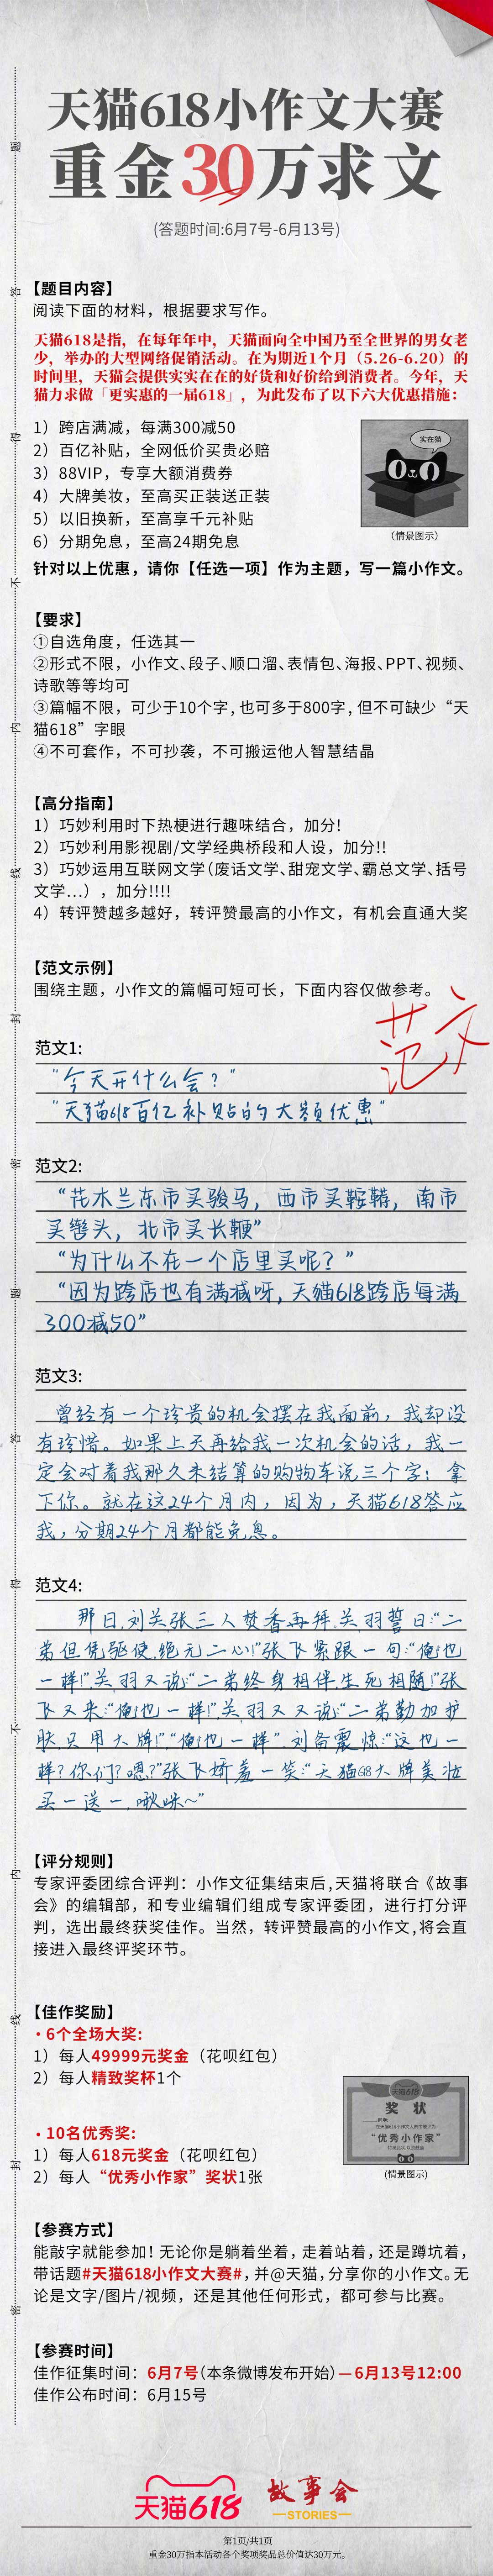 天猫618小作文大赛
重金30万求文
(答题时间:6月7号-6月13号)
【题目内容】
阅读下面的材料，根据要求写作。
天猫618是指，在每年年中，天猫面向全中国乃至全世界的男女老
少，举办的大型网络促销活动。在为期近1个月（5.26-6.20）的
时间里，天猫会提供实实在在的好货和好价给到消费者。今年，天
猫力求做「更实惠的一届618」，为此发布了以下六大优惠措施：
1）跨店满减，每满300减50
2）百亿补贴，全网低价买贵必赔
3）88VIP，专享大额消费券
4）大牌美妆，至高买正装送正装
5）以旧换新，至高享千元补贴
6）分期免息，至高24期免息
实在猫
（情景图示）
针对以上优惠，请你【任选一项】作为主题，写一篇小作文。
【要求】
①自选角度，任选其一
②形式不限，小作文、段子、顺口溜、表情包、海报、PPT、视频、
诗歌等等均可
③篇幅不限，可少于10个字，也可多于800字，但不可缺少“天
猫618”字眼
④不可套作，不可抄袭，不可搬运他人智慧结晶
【高分指南】
1）巧妙利用时下热梗进行趣味结合，加分!
2）巧妙利用影视剧/文学经典桥段和人设，加分!!
3）巧妙运用互联网文学（废话文学、甜宠文学、霸总文学、括号
文学...），加分!!!!
4）转评赞越多越好，转评赞最高的小作文，有机会直通大奖
【范文示例】
围绕主题，小作文的篇幅可短可长，下面内容仅做参考。
范文
范文1:
“今天开什么会？”
“天猫618百亿补贴的大额优惠”
范文2:
“花木兰东市买骏马，西市买鞍鞯，南市
买辔头，北市买长鞭”
“为什么不在一个店里买呢？”
“因为跨店也有满减呀，天猫618跨店每满
300减50”
范文3:
曾经有一个珍贵的机会摆在我面前，我却没
有珍惜。如果上天再给我一次机会的话，我一
定会对着我那久未结算的购物车说三个字：拿
下你。就在这24个月内，因为，天猫618答应
我，分期24个月都能免息。
范文4:
那日，刘关张三人焚香再拜，关羽誓曰：“二
弟但凭驱使，绝无二心!”张飞紧跟一句：“俺也
一样!”，关羽又说：“二弟终身相伴，生死相随!”张
飞又来：“俺也一样!”，关羽又又说：“二弟勤加护
肤，只用大牌!”，“俺也一样”，刘备震惊：“这也一
样？你们？嗯？”张飞娇羞一笑：“天猫618大牌美妆
买一送一，啾咪~”
【评分规则】
专家评委团综合评判：小作文征集结束后，天猫将联合《故事
会》的编辑部，和专业编辑们组成专家评委团，进行打分评
判，选出最终获奖佳作。当然，转评赞最高的小作文，将会直
接进入最终评奖环节。
【佳作奖励】
·6个全场大奖:
1）每人49999元奖金（花呗红包）
2）每人精致奖杯1个
·10名优秀奖:
1）每人618元奖金（花呗红包）
2）每人“优秀小作家”奖状1张
天猫618
奖 状
“优秀小作家”
（情景图示)
【参赛方式】
能敲字就能参加！无论你是躺着坐着，走着站着，还是蹲坑着，
带话题#天猫618小作文大赛#，并@天猫，分享你的小作文。无
论是文字/图片/视频，还是其他任何形式，都可参与比赛。
【参赛时间】
佳作征集时间：6月7号（本条微博发布开始）—6月13号12:00
佳作公布时间：6月15号
天猫618
故事会
STORIES
第1页/共1页
重金30万指本活动各个奖项奖品总价值达30万元。
题
答
得
不
内
线
封
密
题
答
得
不
内
线
封
密